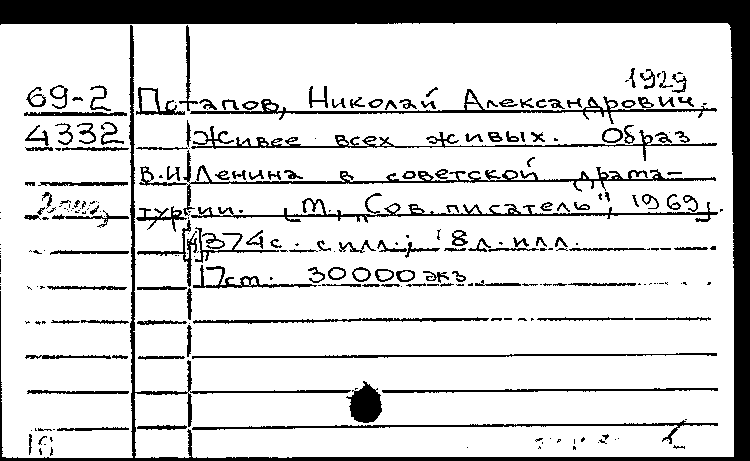 1929
69-2 Потапов, Николай Александрович,
4332 Живее всех живых. Образ
В.И. Ленина в советской драма-
2 экз. тургии. [М., „Сов. писатель", 1969].
[4], 374 с. с илл.; 8 л. илл.
17 см. 30000 экз.
16